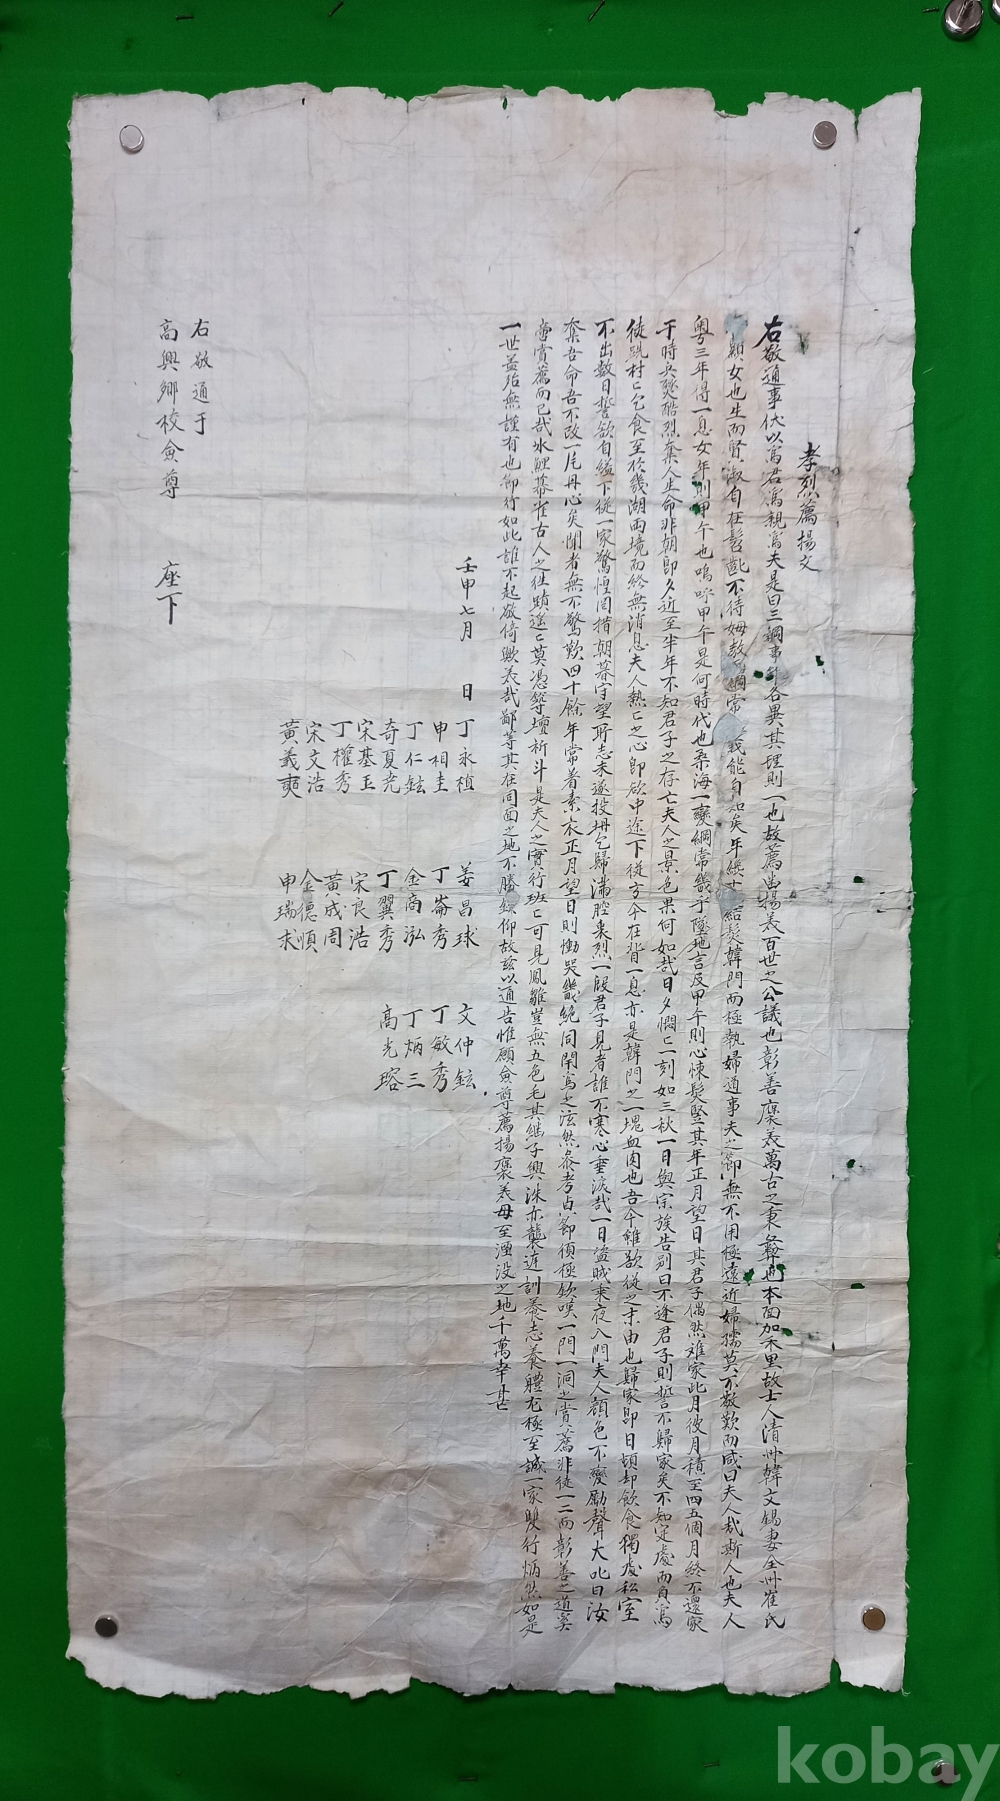 孝烈薦揚文
右敬通事伏以爲君爲親爲夫是曰三綱事雖各異其理則一也故薦出揚義百世之公議也彰善褒美萬古之秉彝也本面加禾里故士人清州韓文錫妻全州崔氏
顯女也生而賢淑自在髫齔不待姆敎綱常義能自知矣年纔十結髮韓門而極執婦道事夫之節無不用極遠近婦孺莫不敬歎而咸曰夫人哉斯人也夫人
粤三年得一息女年則甲午也嗚呼甲午是何時代也桑海一變綱常幾乎墜地言及甲午則心悚髮竪其年正月望日其君子偶然難家此月彼月積至四五個月終不還家
于時兵燹酷烈棄人生命非朝卽夕近至半年不知君子之存亡夫人之景色果何如哉日夕憫〻一刻如三秋一日與宗族告别曰不逢君子則誓不歸家矣不知定處而負爲
徒跣村〻乞食至於幾湖兩境而終無消息夫人熱〻之心卽欲中途下從方今在背一息亦是韓門之一塊血肉也吾今雖欲從之末由也歸家卽日頓却飮食獨處私室
不出數日誓欲自縊下從一家驚惶罔措朝暮守望所志未遂投井乞歸滿腔衷烈一般君子見者誰不寒心垂淚哉一日盜賊乘夜入門夫人顏色不變勵聲大叱曰汝
奪吾命吾不改一片丹心矣聞者無不驚歎四十餘年常着素衣正月望日則慟哭幾絶同閈爲之泫然參考貞節倘極欽嘆一門一洞之賞薦非徒一二而彰善之道奚
啻賞薦而已哉氷鯉幕雀古人之往蹟遥〻莫憑築壇祈斗是夫人之實行班〻可見鳳雛豈無五色毛其繼子興洙亦襲庭訓養志養體尤極至誠一家雙行炳然如是
一世益殆無謹有也卽行如此誰不起敬倚歟美哉鄙等其在同面之地不勝欽仰故玆以通告惟願僉尊薦揚褒美毋至湮没之地千萬幸甚
壬申七月 日
丁永植 姜昌球 文仲鉉
申相圭 丁崙秀 丁敏秀
丁仁鉉 金商泓 丁炳三
奇夏尭 丁翼秀 高光瑢
宋基玉 宋良浩
丁權秀 黃成周
宋文浩 金德順
黃義奭 申瑞求
右敬通于
高興鄕校僉尊 座下
kobay